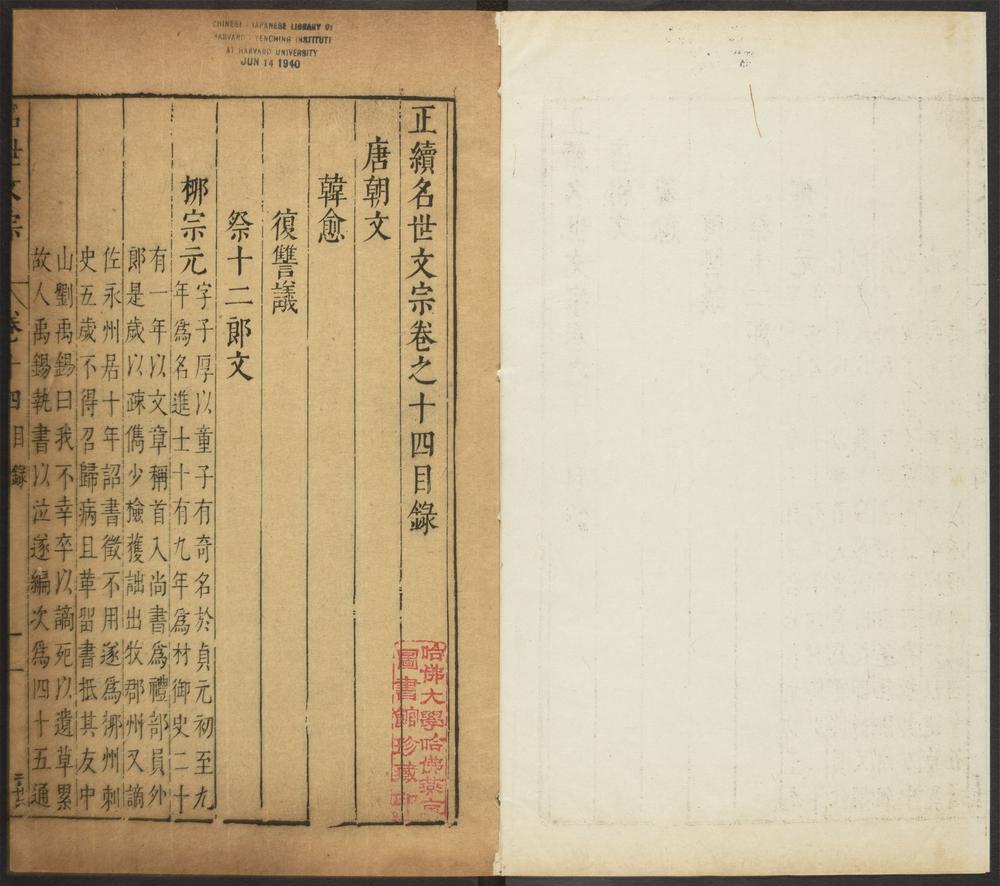 CHINESE - JAPANESE LIBRARY OF
HARVARD - YENCHING INSTITUTE
AT HARVARD UNIVERSITY
JUN 14 1940
正續名世文宗卷之十四目錄
唐朝文
韓愈
復讐議
祭十二郎文
栁宗元
字子厚以童子有奇名於貞元初至九
年爲名進士十有九年爲材御史二十
有一年以文章稱首入尚書爲禮部員外
郎是歲以疎儁少檢獲詘出牧郡州又謫
佐永州居十年詔書徵不用遂爲栁州刺
史五歲不得召歸病且革畱書抵其友中
山劉禹錫曰我不幸卒以謫死以遺草累
故人禹錫執書以泣遂編次爲四十五通
名世文宗
卷十四目錄
一
哈佛大學哈佛燕京
圖書館珍藏印